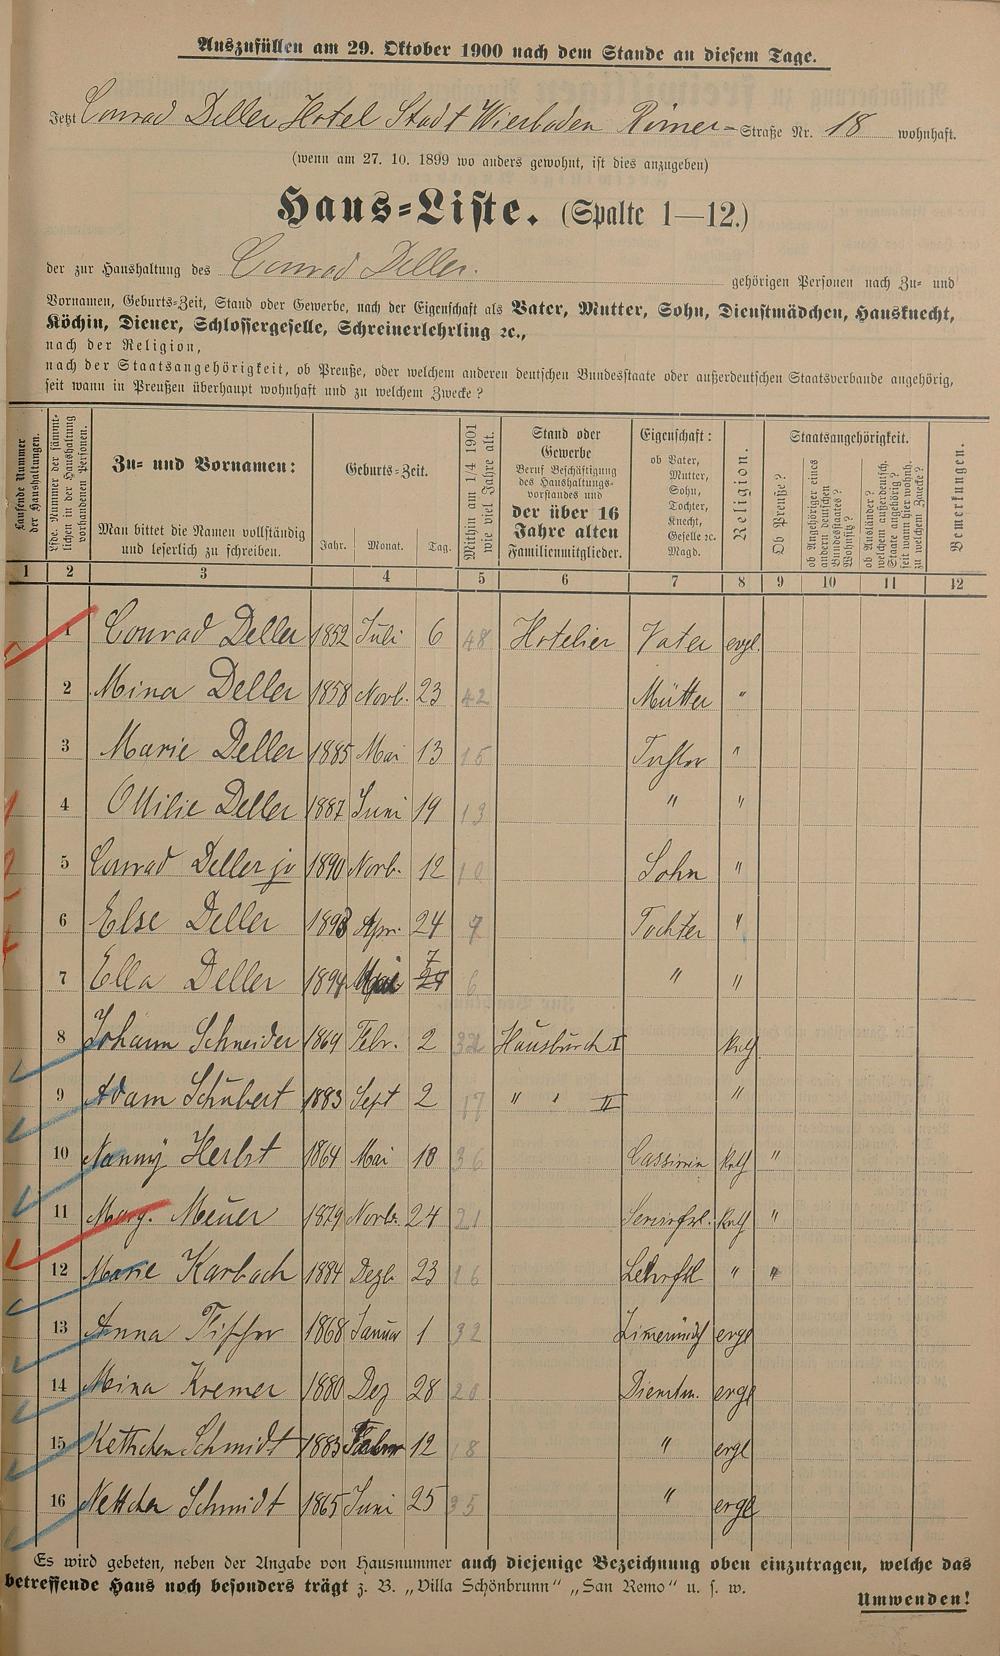 Auszufüllen am 29. Oktober 1900 nach dem Stande an diesem Tage.
Jetzt Conrad Deller Hotel Stadt Wiesbaden Römer-Straße Nr. 18 wohnhaft.
(wenn am 27. 10. 1899 wo anders gewohnt, ist dies anzugeben)
Haus-Liste. (Spalte 1—12.)
der zur Haushaltung des Conrad Deller. gehörigen Personen nach Zu- und
Vornamen, Geburts-Zeit, Stand oder Gewerbe, nach der Eigenschaft als Vater, Mutter, Sohn, Dienstmädchen, Hausknecht,
Köchin, Diener, Schlossergeselle, Schreinerlehrling ꝛc.,
nach der Religion,
nach der Staatsangehörigkeit, ob Preuße, oder welchem anderen deutschen Bundesstaate oder außerdeutschen Staatsverbande angehörig,
seit wann in Preußen überhaupt wohnhaft und zu welchem Zwecke?
Laufende Nummer der Haushaltungen.
Lfde. Nummer der sämmtlichen in der Haushaltung vorhandenen Personen.
Zu- und Vornamen:
Man bittet die Namen vollständig
und leserlich zu schreiben.
Geburts-Zeit.
Jahr. Monat. Tag.
Mithin am 1/4 1901 wie viel Jahre alt.
Stand oder
Gewerbe
Beruf Beschäftigung
des Haushaltungs-
vorstandes und
der über 16
Jahre alten
Familienmitglieder.
Eigenschaft:
ob Vater,
Mutter,
Sohn,
Tochter,
Knecht,
Geselle ꝛc.
Magd.
Religion.
Staatsangehörigkeit.
Ob Preuße?
ob Angehöriger eines andern deutschen Bundesstaates? Wohnsitz?
ob Ausländer? welchem außerdeutsch. Staate angehörig? seit wann hier wohnh. zu welchem Zwecke?
Bemerkungen.
1 2 3 4 5 6 7 8 9 10 11 12
1 Conrad Deller 1852 Juli 6 48 Hotelier Vater evgl.
2 Mina Deller 1858 Novb. 23 42 Mutter "
3 Marie Deller 1885 Mai 13 15 Tochter "
4 Ottilie Deller 1887 Juni 19 13 " "
5 Conrad Deller jr 1890 Novb. 12 10 Sohn "
6 Else Deller 1893 Apr. 24 7 Tochter "
7 Ella Deller 1894 Mai 7 6 " "
8 Johann Schneider 1869 Febr. 2 32 Hausbursch I Kath
9 Adam Schubert 1883 Sept 2 17 " " II "
10 Nanny Herbst 1864 Mai 18 36 Cassirerin Kath "
11 Marg. Meuer 1879 Novb. 24 21 Servirfrl. Kath "
12 Marie Karbach 1884 Dezb. 23 16 Lehrfrl " "
13 Anna Fischer 1868 Januar 1 32 evgl
14 Mina Kremer 1880 Dez 28 20 Dienstm. evgl
15 Kettchen Schmidt 1883 Febr 12 18 " evgl
16 Nettchen Schmidt 1865 Juni 25 35 " evgl
Es wird gebeten, neben der Angabe von Hausnummer auch diejenige Bezeichnung oben einzutragen, welche das
betreffende Haus noch besonders trägt z. B. „Villa Schönbrunn“ „San Remo“ u. s. w.
Umwenden!